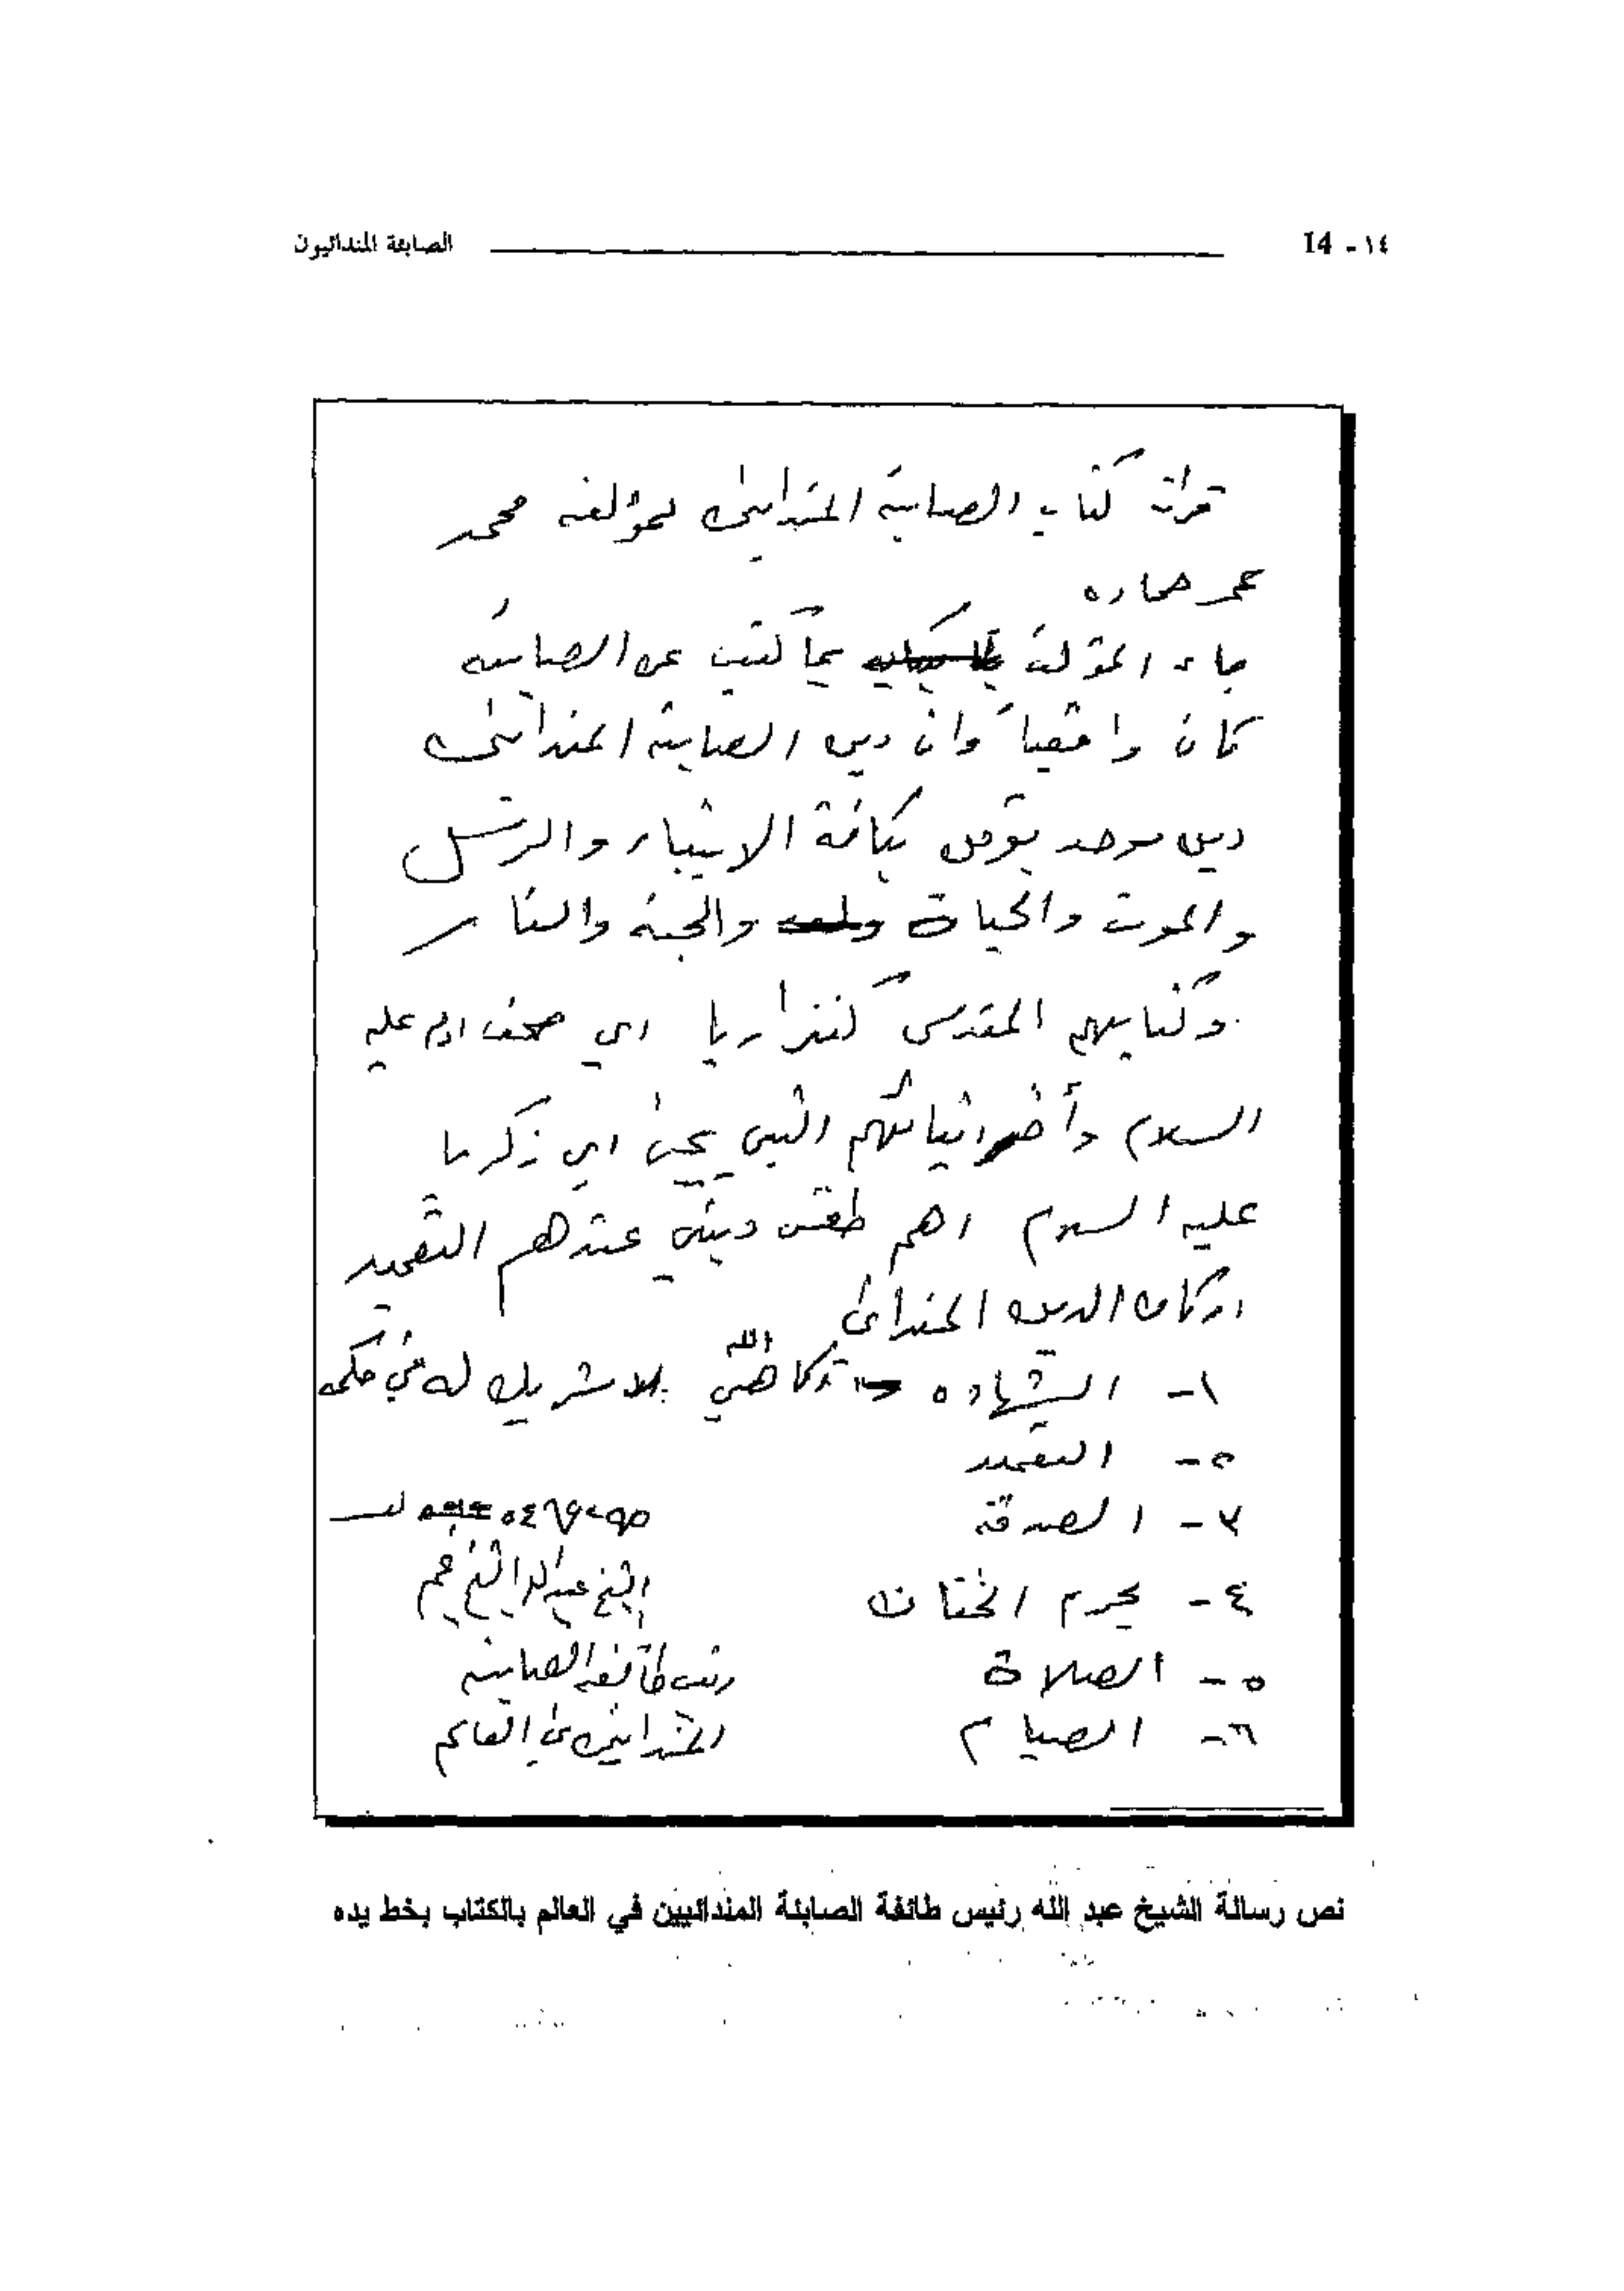 ١٤ - 14 الصابئة المندائيون
قرأت كتاب الصابئة المندائين لمؤلفه محمد
عمر حماده
جاء المؤلف بما كتب عن الصابئه
كان واقعياً وان دين الصابئة المندائين
دين موحد يؤمن بكافة الانبياء والرسل
والموت والحياة والجنة والنار
وكتابهم المقدس كنزاربا اي صحف ادم عليه
السلام وأخر انبيائهم النبي يحيى ابن زكريا
عليه السلام اهم طقس ديني عندهم التعميد
اركان الدين المندائي
١- الشهاده الله بلا شريك له في
التعميد
٣- الصدقة
الشيخ عبدالله الشيخ نجم
٤- يحرم الختان
٥- الصلاة
رئيس طائفة الصابئه
٦- الصيام
المندائين في العالم
نص رسالة الشيخ عبد الله رئيس طائفة الصابئة المندائيين في العالم بالكتاب بخط يده